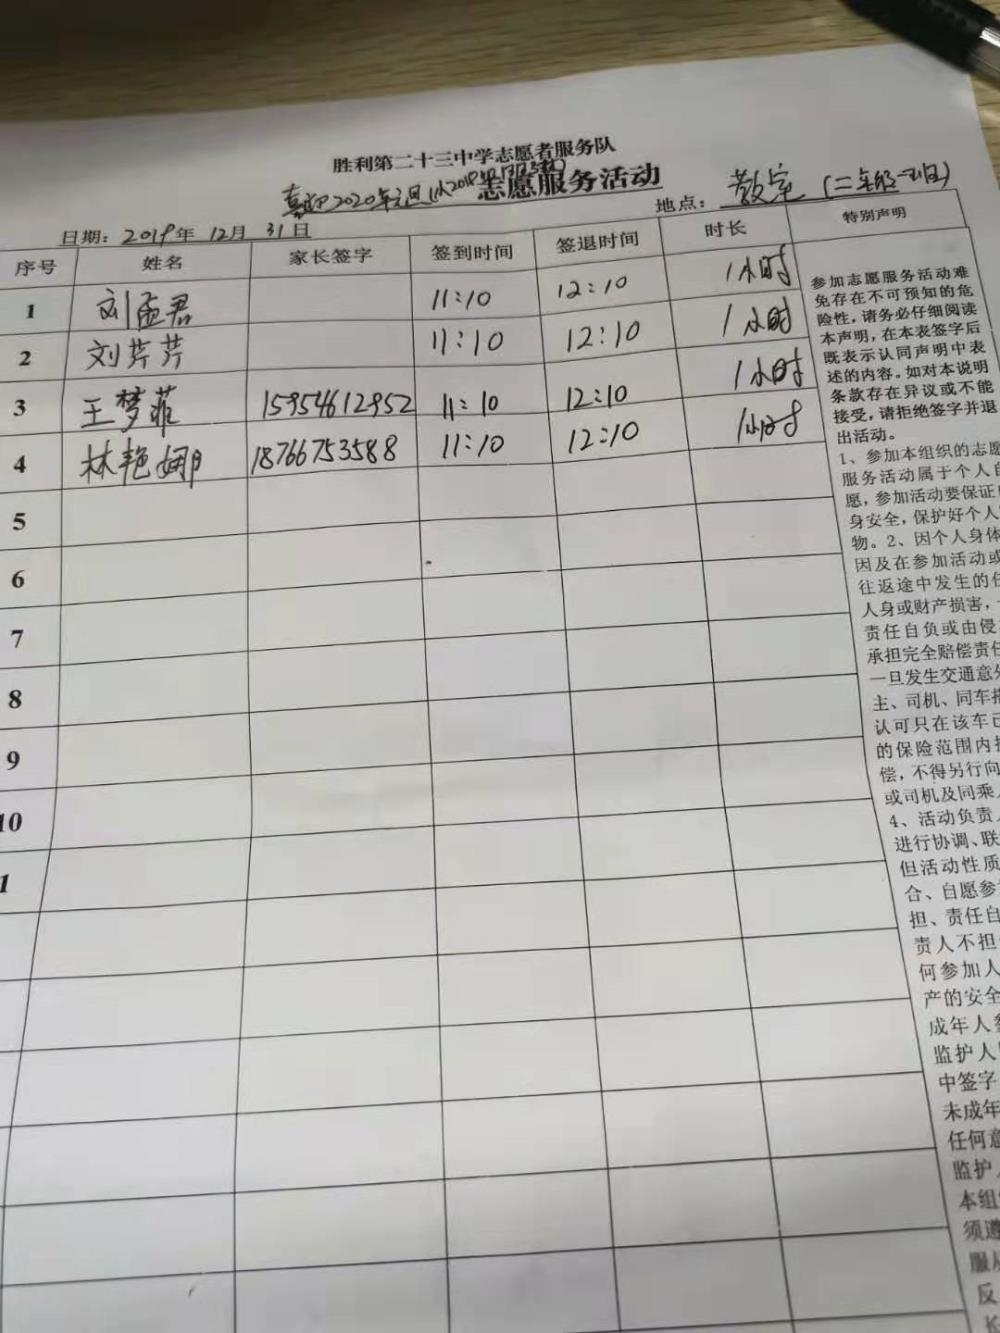 胜利第二十三中学志愿者服务队
喜迎2020年元旦 志愿服务活动
日期：2019年 12月 31日 地点：教室（二年级一班）
序号 姓名 家长签字 签到时间 签退时间 时长 特别声明
1 刘孟君 11:10 12:10 1小时
2 刘芹芹 11:10 12:10 1小时
3 王梦菲 15954612952 11:10 12:10 1小时
4 林艳娜 18766753588 11:10 12:10 1小时
5
6
7
8
9
10
1
参加志愿服务活动难
免存在不可预知的危
险性，请务必仔细阅读
本声明，在本表签字后
既表示认同声明中表
述的内容。如对本说明
条款存在异议或不能
接受，请拒绝签字并退
出活动。
1、参加本组织的志愿
服务活动属于个人自
愿，参加活动要保证自
身安全，保护好个人
物。2、因个人身体
因及在参加活动或
往返途中发生的任
人身或财产损害，
责任自负或由侵
承担完全赔偿责任
一旦发生交通意外
主、司机、同车搭
认可只在该车已
的保险范围内
偿，不得另行向
或司机及同乘人
4、活动负责人
进行协调、联
但活动性质
合、自愿参
担、责任自
责人不担
何参加人
产的安全
成年人参
监护人
中签字
未成年
任何意
监护人
本组
须遵
服从
反